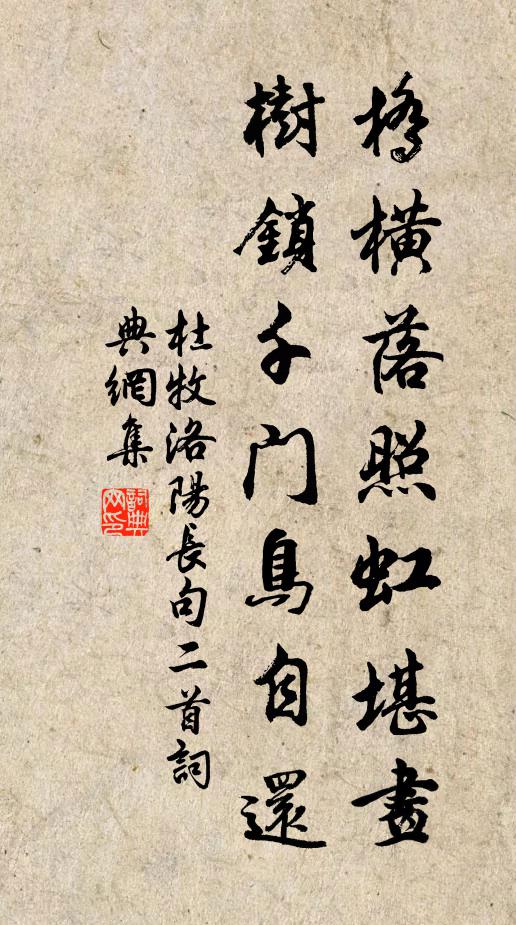 橋橫落照虹堪畫
樹鎖千門鳥自還
杜牧洛陽長句二首詞
典網集
詞典
网印